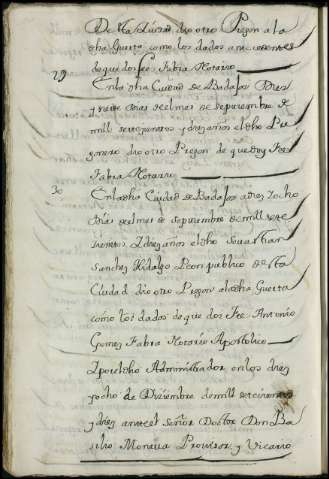 De Na dio otro Pregon a la
dha Guerta como los dados antecedentes
de que doi fee Fabra Notario
29 En la dha Ciudad de Badajos diez
y nueve dias del mes de septiembre de
mill setecientos y diez años el dho Pre
gonero dio otro Pregon de que doy Fee
Fabra Notario
30 En la dha Ciudad de Badajos a diez y ocho
dias del mes de septiembre de mill sete
cientos y diez años el dho Sevastian
Sanchez Hidalgo Peon publico de sta
Ciudad dio otro Pregon a la dha Guerta
como los dados de que doi Fee Antonio
Gomez Fabra Notario Apostolico
dho Administrador en los diez
y ocho de Diziembre de mill setecientos
y diez ante el Señor Doctor Don Ba
silio Provisor y Vicario